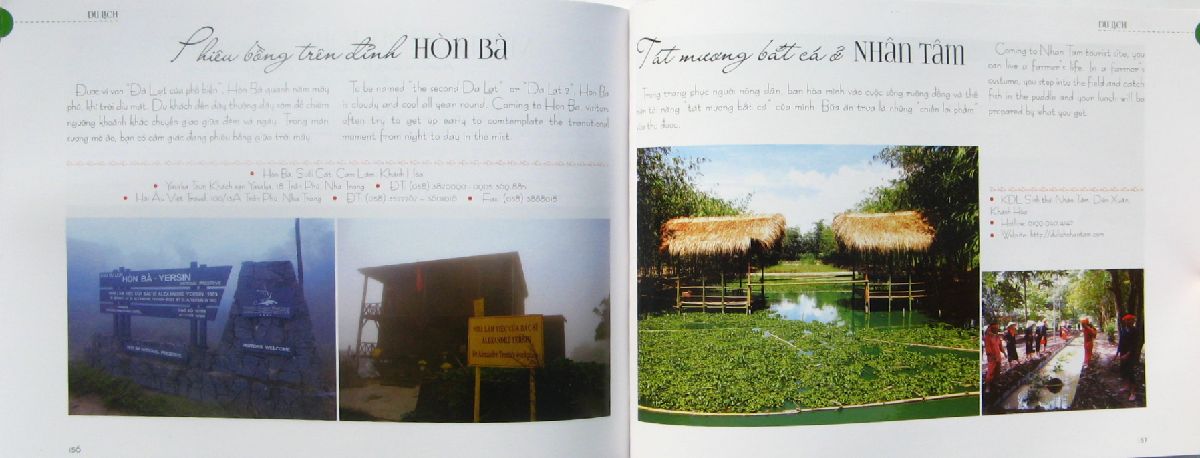 DU LỊCH
Phiêu bồng trên đỉnh HÒN BÀ
Được ví von "Đà Lạt của phố biển", Hòn Bà quanh năm mây
phủ, khí trời dịu mát. Du khách đến đây thường dậy sớm để chiêm
ngưỡng khoảnh khắc chuyển giao giữa đêm và ngày. Trong màn
sương mờ ảo, bạn có cảm giác đang phiêu bồng giữa trời mây.
To be named "the second Da Lat" or "Da Lat 2", Hon Ba
is cloudy and cool all year round. Coming to Hon Ba, visitors
often try to get up early to comtemplate the transitional
moment from night to day in the mist.
Hòn Bà, Suối Cát, Cam Lâm, Khánh Hòa
Yasaka, 18 Trần Phú, Nha Trang • ĐT: (058)
Hải Âu Việt Travel, Trần Phú, Nha Trang • ĐT: (058) • Fax: (058) 3868018
HÒN BÀ - YERSIN
NƠI LÀM VIỆC CỦA BÁC SĨ
ALEXANDRE YERSIN
156
DU LỊCH
Tát mương bắt cá ở NHÂN TÂM
Trong trang phục người nông dân, bạn hòa mình vào cuộc sống ruộng đồng và thể
hiện tài năng "tát mương bắt cá" của mình. Bữa ăn trưa là những "chiến lợi phẩm"
vừa thu được.
Coming to Nhan Tam tourist site, you
can live a farmer's life. In a farmer's
custume, you step into the field and catch
fish in the puddle and your lunch will be
prepared by what you get.
• KDL Sinh thái Nhân Tâm, Diên Xuân,
Khánh Hòa
• Hotline:
• Website: http://dulichnhantam.com
157